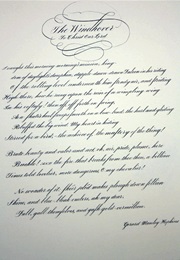 The Windhover
To Christ Our Lord
I caught this morning morning's minion, king-
dom of daylight's dauphin, dapple-dawn-drawn Falcon, in his riding
Of the rolling level underneath him steady air, and striding
High there, how he rung upon the rein of a wimpling wing
In his ecstasy! then off, off forth on swing,
As a skate's heel sweeps smooth on a bow-bend: the hurl and gliding
Rebuffed the big wind. My heart in hiding
Stirred for a bird, - the achieve of, the mastery of the thing!
Brute beauty and valour and act, oh, air, pride, plume, here
Buckle! AND the fire that breaks from thee then, a billion
Times told lovelier, more dangerous, O my chevalier!
No wonder of it: shéer plód makes plough down sillion
Shine, and blue-bleak embers, ah my dear,
Fall, gall themselves, and gash gold-vermilion.
Gerard Manley Hopkins